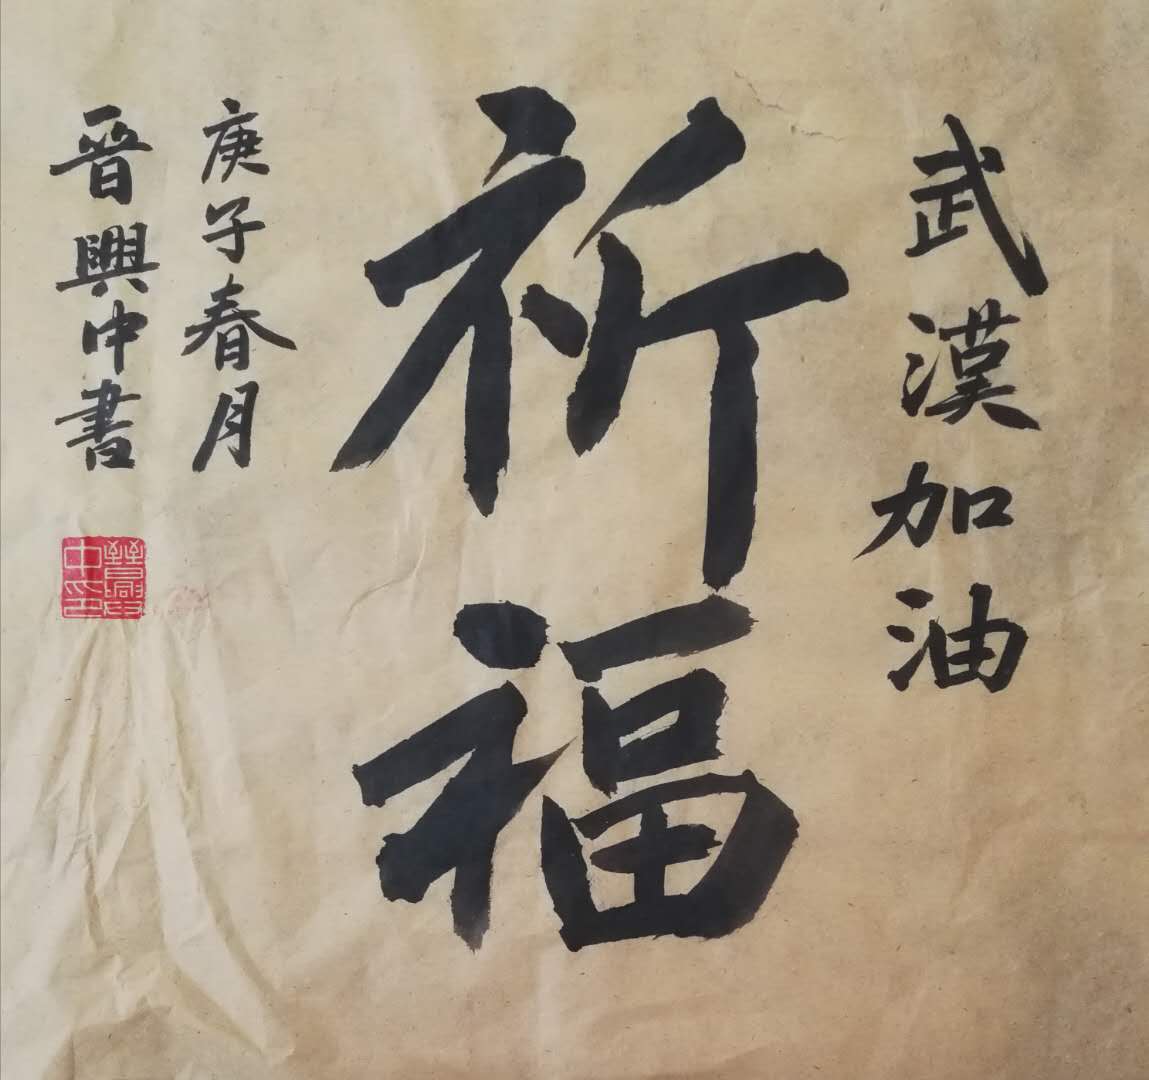 武漢加油
祈福
庚子春月
晉興中書